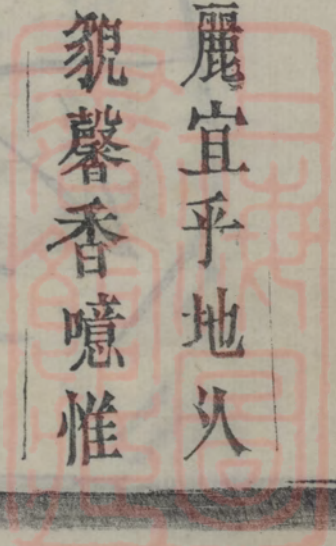 麗宜乎地以
貌馨香噫惟